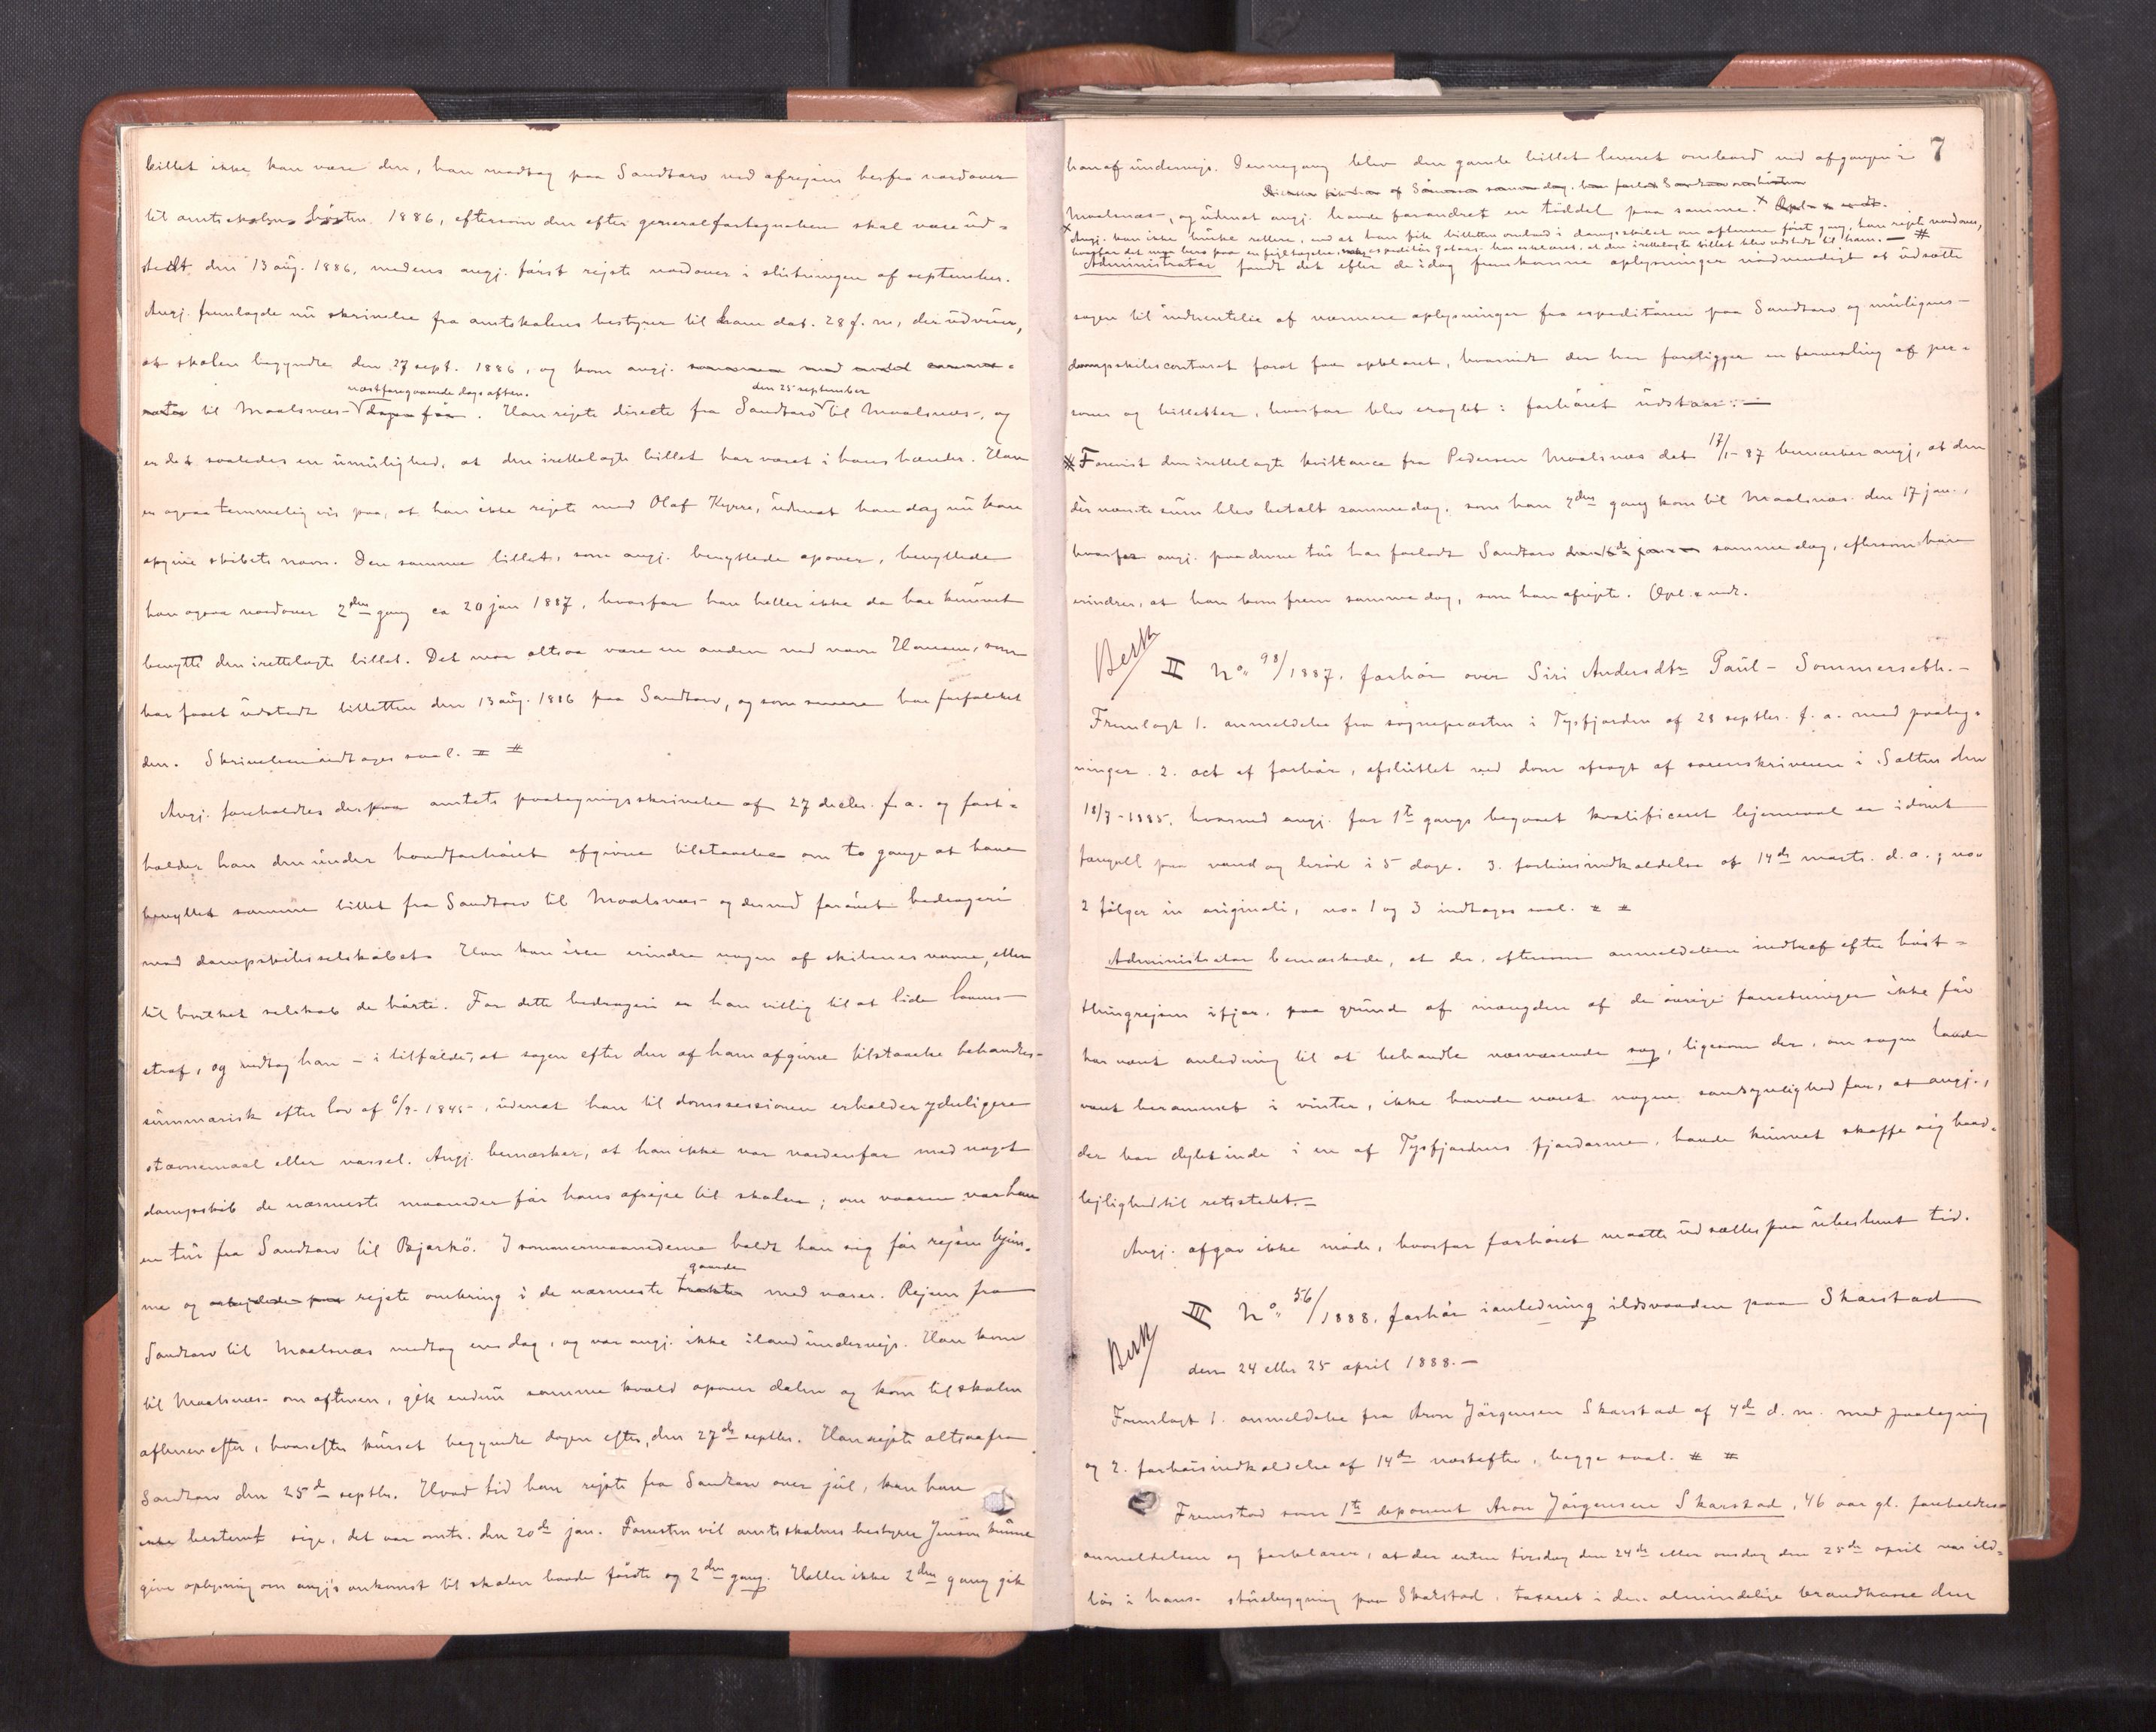 billet ikke kan være den, han modtog paa Sandtorv ved afrejsen herfra nordover
til amtsskolen høsten 1886, eftersom den efter generalfortegnelsen skal være ud-
stedt den 13 aug. 1886, medens angj. først rejste nordover i slutningen af september.
Angj. fremlagde nu skrivelse fra amtsskolens bestyrer til ham dat. 28 f. m., der udviser,
at skolen begyndte den 27 sept. 1886, og kom angj.
næstforegaaende dags aften. den 25 september
til Maalsnes dagen før. Han rejste directe fra Sandtorv til Maalsnes, og
er det saaledes en umulighed, at den irettelagte billet har været i hans hænder. Han
er ogsaa temmelig vis paa, at han ikke rejste med Olaf Kyrre, uden at han dog nu kan
opgive skibets navn. Den samme billet, som angj. benyttede opover, benyttede
han ogsaa nordover 2den gang ca 20 jan 1887, hvorfor han heller ikke da har kunnet
benytte den irettelagte billet. Det maa altsaa være en anden ved navn Hansen, som
har faaet udstedt billetten den 13 aug. 1886 paa Sandtorv, og som senere har forfalsket
den. Skrivelsen indtages saal. # #
Angj. foreholdtes derpaa amtets paategningsskrivelse af 27 decbr. f. a. og fast-
holder han den under hovedforhøret afgivne tilstaaelse om to gange at have
benyttet samme billet fra Sandtorv til Maalsnes og derved forøvet bedrageri
mod dampskibsselskabet. Han kan ikke erindre nogen af skibenes navne, eller
til hvilket selskab de hørte. For dette bedrageri er han villig til at lide lovens
straf, og vedtog han - i tilfælde, at sagen efter den af ham afgivne tilstaaelse behandles
summarisk efter lov af 6/9-1845-, uden at han til domssessionen erholder yderligere
stævnemaal eller varsel. Angj. bemærker, at han ikke var nordenfor med noget
dampskib de nærmeste maaneder før hans afrejse til skolen; om vaaren var han
en tur fra Sandtorv til Bjarkö. I sommermaanederne holdt han sig før rejsen hjem-
gaarde
me og arbejdede paa rejste omkring i de nærmeste trakter med varer. Rejsen fra
Sandtorv til Maalsnes medtog en dag, og var angj. ikke iland undervejs. Han kom
til Maalsnes om aftenen, gik endnu samme kveld opover dalen og kom til skolen
aftenen efter, hvorefter kurset begyndte dagen efter, den 27de septbr. Han rejste altsaa fra
Sandtorv den 25de septbr. Hvad tid han rejste fra Sandtorv over jul, kan han
ikke bestemt sige, det var omtr. den 20de jan. Forresten vil amtsskolens bestyrer Jensen kunne
give oplysning om angj's ankomst til skolen baade første og 2den gang. Heller ikke 2den gang gik
7
han af undervejs. Dennegang blev den gamle billet leveret ombord ved afgangen i
Maalsnes, og uden at angj. havde forandret en tøddel paa samme. x Opl. & vedt.
x Angj. kan ikke huske rettere, end at han fik billetten ombord i dampskibet om aftenen først gang, han rejste nordover,
hvorfor det maa bero paa en fejltagelse, naar expeditør har erklæret, at den irettelagte billet blev udstedt til ham. — #
Administrator fandt det efter de idag fremkomne oplysninger nødvendigt at udsætte
sagen til indhentelse af nærmere oplysninger fra expeditøren paa Sandtorv og muligens
dampskibscontoret forat faa opklaret, hvorvidt der her foreligger en forvexling af per-
soner og billetter, hvorfor blev eragtet: forhøret udstaar. —
# Forevist den irettelagte kvittance fra Pedersen Maalsnes dat 17/1-87 bemærker angj, at den
der nævnte sum blev betalt samme dag, som han 2den gang kom til Maalsnes den 17 jan.,
hvorfor angj. paa denne tur har forladt Sandtorv samme dag, eftersom han
erindrer, at han kom frem samme dag, som han afrejste. Opl. & vedt.
Besk
II No. 98/1887. forhør over Siri Andersdtr Paul-Sommersebh.-
Fremlagt 1. anmeldelse fra sognepræsten i Tysfjorden af 28 septbr. f. a. med paateg-
ninger. 2. act af forhør, afsluttet ved dom afsagt af sorenskriveren i Salten den
18/7-1885, hvorved angj. for 1te gangs begaaet kvalificeret lejermaal er idømt
fængsel paa vand og brød i 5 dage. 3. forhørsindkaldelse af 14de marts d. a.; no.
2 følger in originali, no. 1 og 3 indtages saal. # #
Administrator bemærkede, at der, eftersom anmeldelsen indtraf efter høst-
thingrejsen ifjor, paa grund af mængden af de øvrige forretninger ikke før
har været anledning til at behandle nærværende sag, ligesom der, om sagen havde
været berammet i vinter, ikke havde været nogen sandsynlighed for, at angj.,
der bor dybt inde i en af Tysfjordens fjordarme, havde kunnet skaffe sig baad-
lejlighed til retsstedet. —
Angj. afgav ikke møde, hvorfor forhøret maatte udsættes paa ubestemt tid.
Besk
III No. 56/1888. forhør i anledning ildsvaaden paa Skarstad
den 24 eller 25 april 1888. —
Fremlagt 1. anmeldelse fra Aron Jørgensen Skarstad af 4de d. m. med paategning
og 2. forhørsindkaldelse af 14de næstefter, begge saal. # #
Fremstod som 1te deponent Aron Jørgensen Skarstad, 46 aar gl. foreholdtes
anmeldelsen og forklarer, at der enten tirsdag den 24de eller onsdag den 25de april var ild-
løs i hans stuebygning paa Skarstad, taxeret i den almindelige brandkasse den